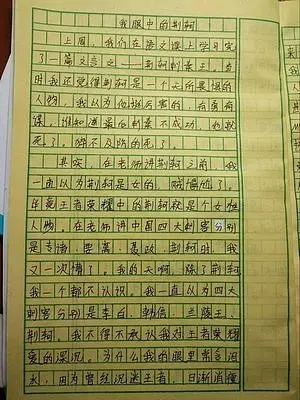 我眼中的荆轲
上周，我们在语文课上学习完
了一篇文言文——荆轲刺秦王。当
时我还觉得荆轲是一个无所畏惧的
人物，我以为他挺厉害的，有勇有
谋，谁知道最后刺秦不成功，也就
死了。惨不及防的死了。
其实，在老师讲荆轲之前，我
一直以为荆轲是女的，贼尴尬了。
毕竟王者荣耀中的荆轲就是个女性
人物。在老师讲中国四大刺客分别
是专诸，要离，聂政，荆轲时，我
又一次懵了。我的天啊，除了荆轲
我一个都不认识。我一直以为四大
刺客分别是李白，韩信，兰陵王，
荆轲。我不得不承认我对王者荣耀
爱的深沉。为什么我的眼里常含泪
水，因为曾经沉迷王者，日渐消瘦